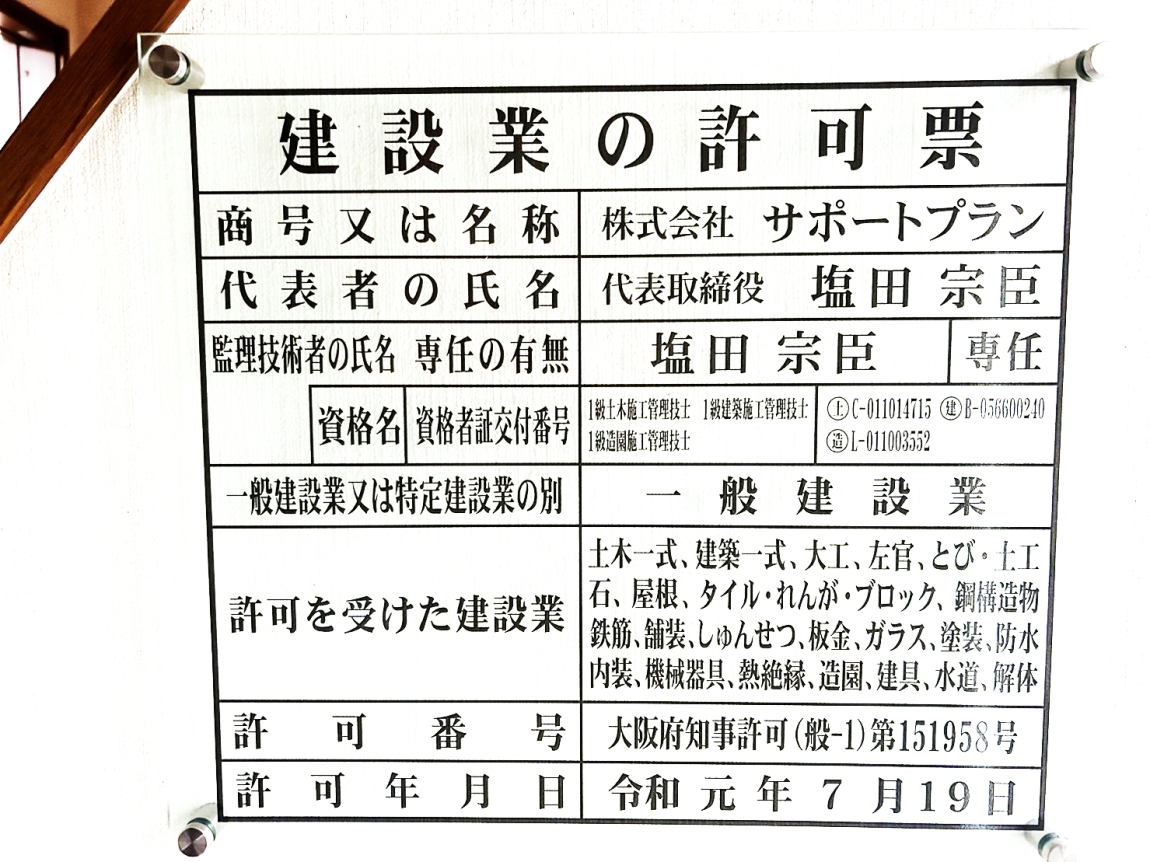 建設業の許可票
商号又は名称 株式会社 サポートプラン
代表者の氏名 代表取締役 塩田 宗臣
監理技術者の氏名 専任の有無 塩田 宗臣 専任
資格名 資格者証交付番号 1級土木施工管理技士 1級建築施工管理技士 土C-011014715 建B-056600240
1級造園施工管理技士 造L-011003552
一般建設業又は特定建設業の別 一般建設業
許可を受けた建設業 土木一式、建築一式、大工、左官、とび・土工
石、屋根、タイル・れんが・ブロック、鋼構造物
鉄筋、舗装、しゅんせつ、板金、ガラス、塗装、防水
内装、機械器具、熱絶縁、造園、建具、水道、解体
許可番号 大阪府知事許可(般-1)第151958号
許可年月日 令和元年7月19日